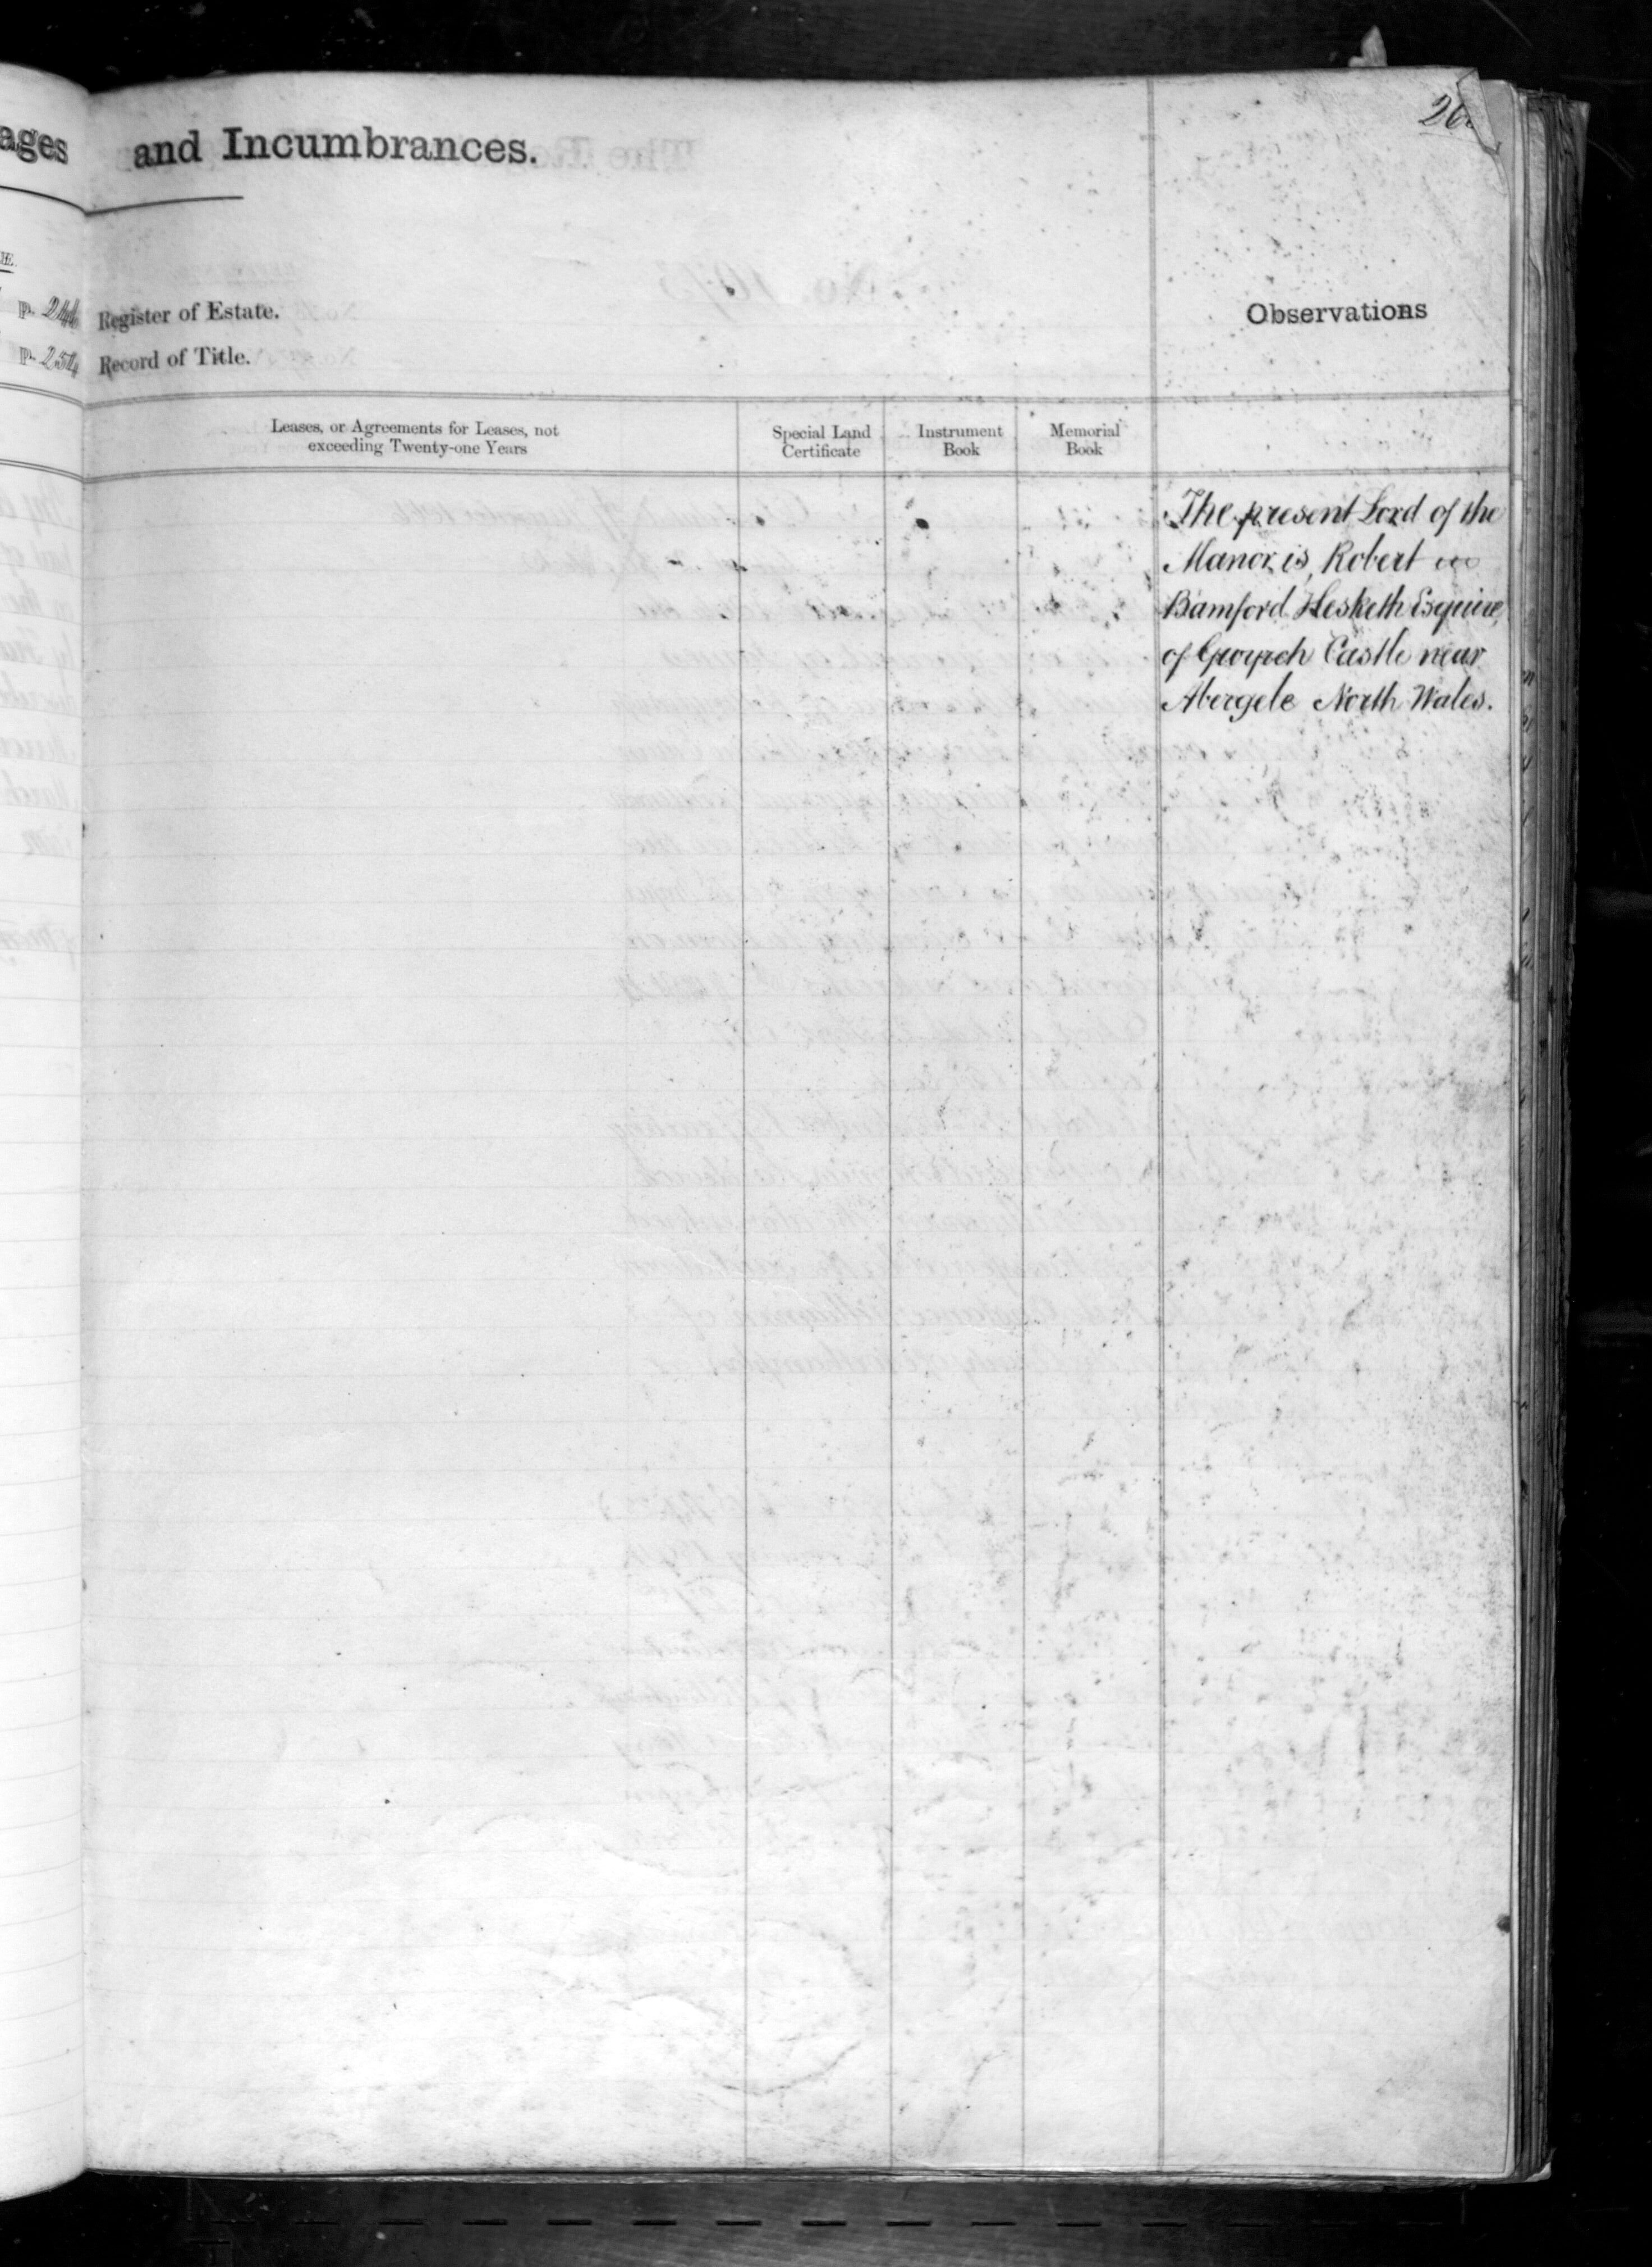 ages and Incumbrances.
p. 244 Register of Estate.
p. 254 Record of Title.
Observations
Leases, or Agreements for Leases, not
exceeding Twenty-one Years
Special Land
Certificate
Instrument
Book
Memorial
Book
The present Lord of the
Manor is, Robert
Bamford Hesketh Esquire,
of Gwyrch Castle near
Abergele North Wales.